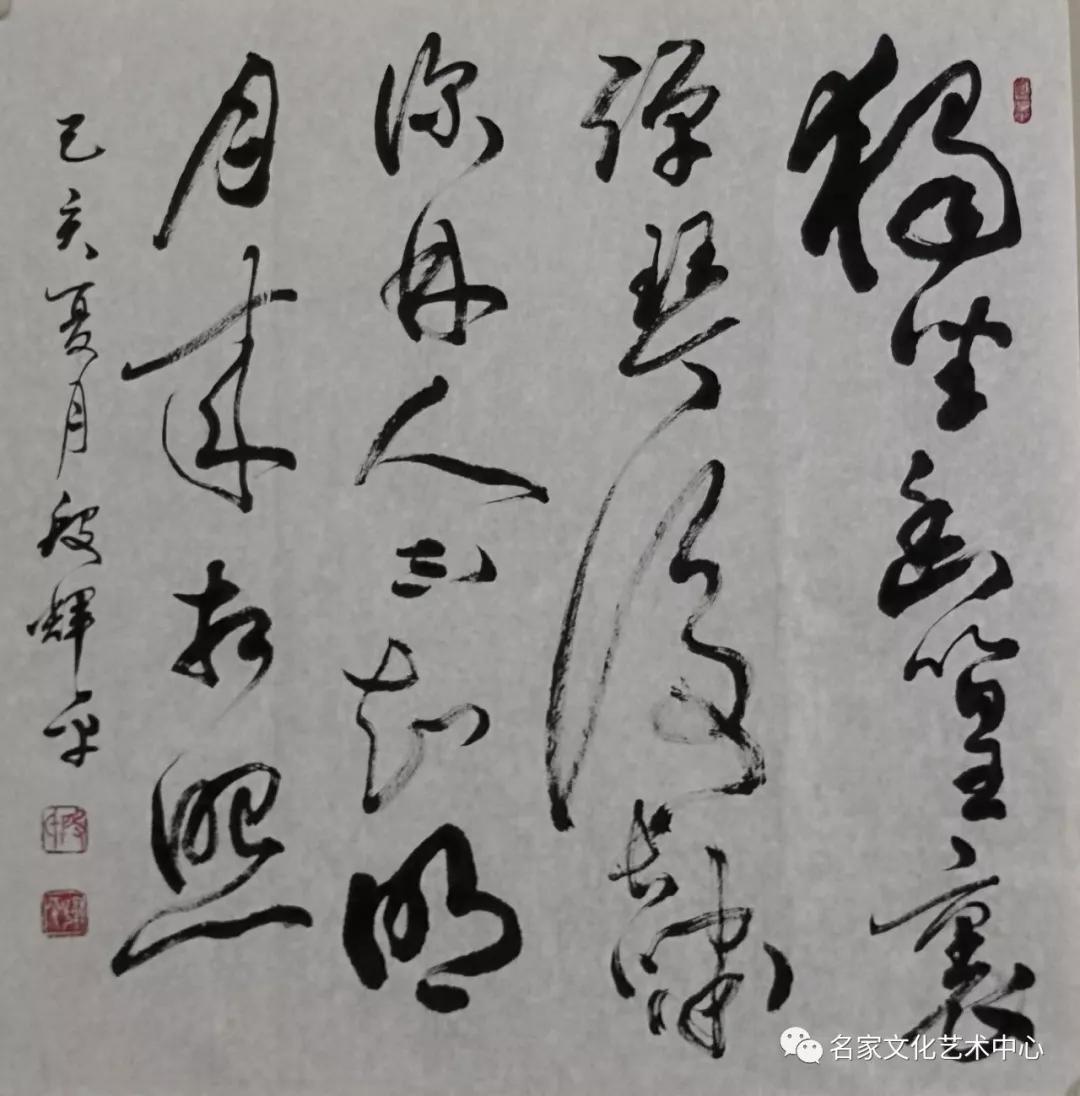 獨坐幽篁裏
彈琴復長嘯
深林人不知明
月來相照
己亥夏月輝平
名家文化艺术中心